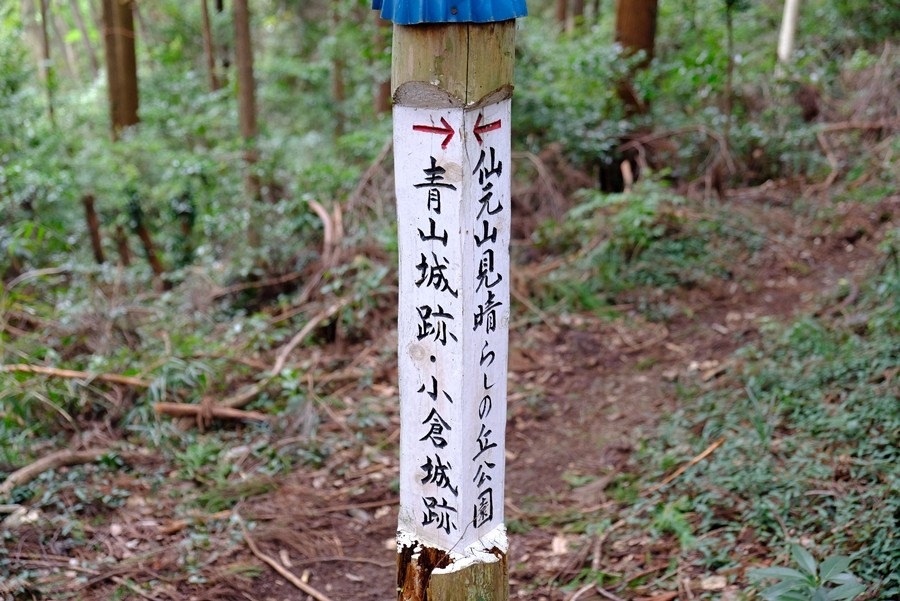 →
青山城跡・小倉城跡
←
仙元山見晴らしの丘公園